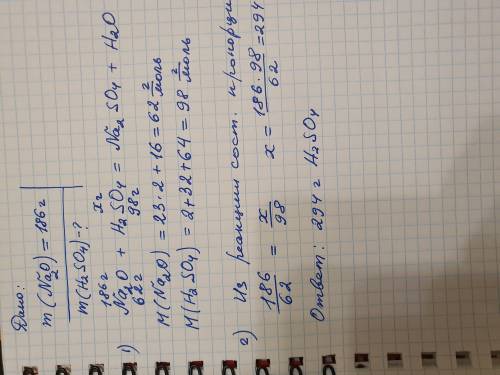 Дано:
m (Na2O) = 186г
m(H2SO4)-?
186г хг
1) Na2O + H2SO4 = Na2SO4 + H2O
62г 98г
M(Na2O) = 23·2+16=62 г/моль
M(H2SO4) = 2+32+64 = 98 г/моль
2) Из реакции сост. пропорци
186/62 = x/98 x = 186·98/62 = 294
Ответ: 294г H2SO4